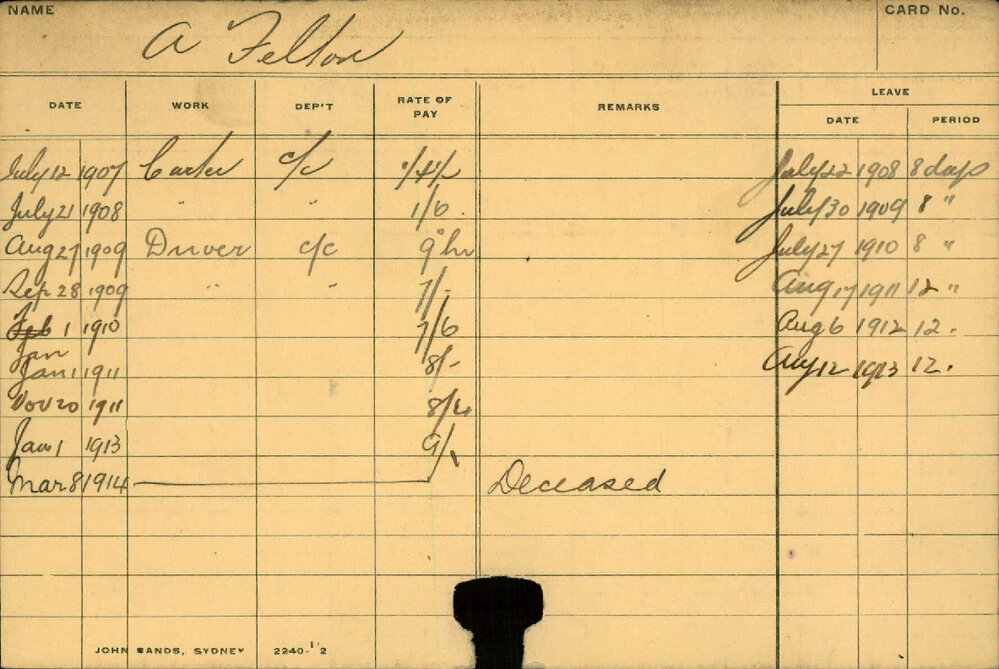 NAME CARD No.
A Felton
DATE WORK DEP'T RATE OF PAY REMARKS LEAVE
DATE PERIOD
July 12 1907 Carter c/c July 22 1908 8 days
July 21 1908 " " 1/6 July 30 1909 8 "
Aug 27 1909 Driver c/c 9° hr July 27 1910 8 "
Sep 28 1909 " " 7/- Aug 17 1911 12 "
Feb 1 1910 7/6 Aug 6 1912 12.
Jan
Jan 1 1911 8/- Aug 12 1913 12.
Nov 20 1911 8/4
Jan 1 1913 9/-
Mar 8 1914 Deceased
JOHN SANDS, SYDNEY 2240-1'2